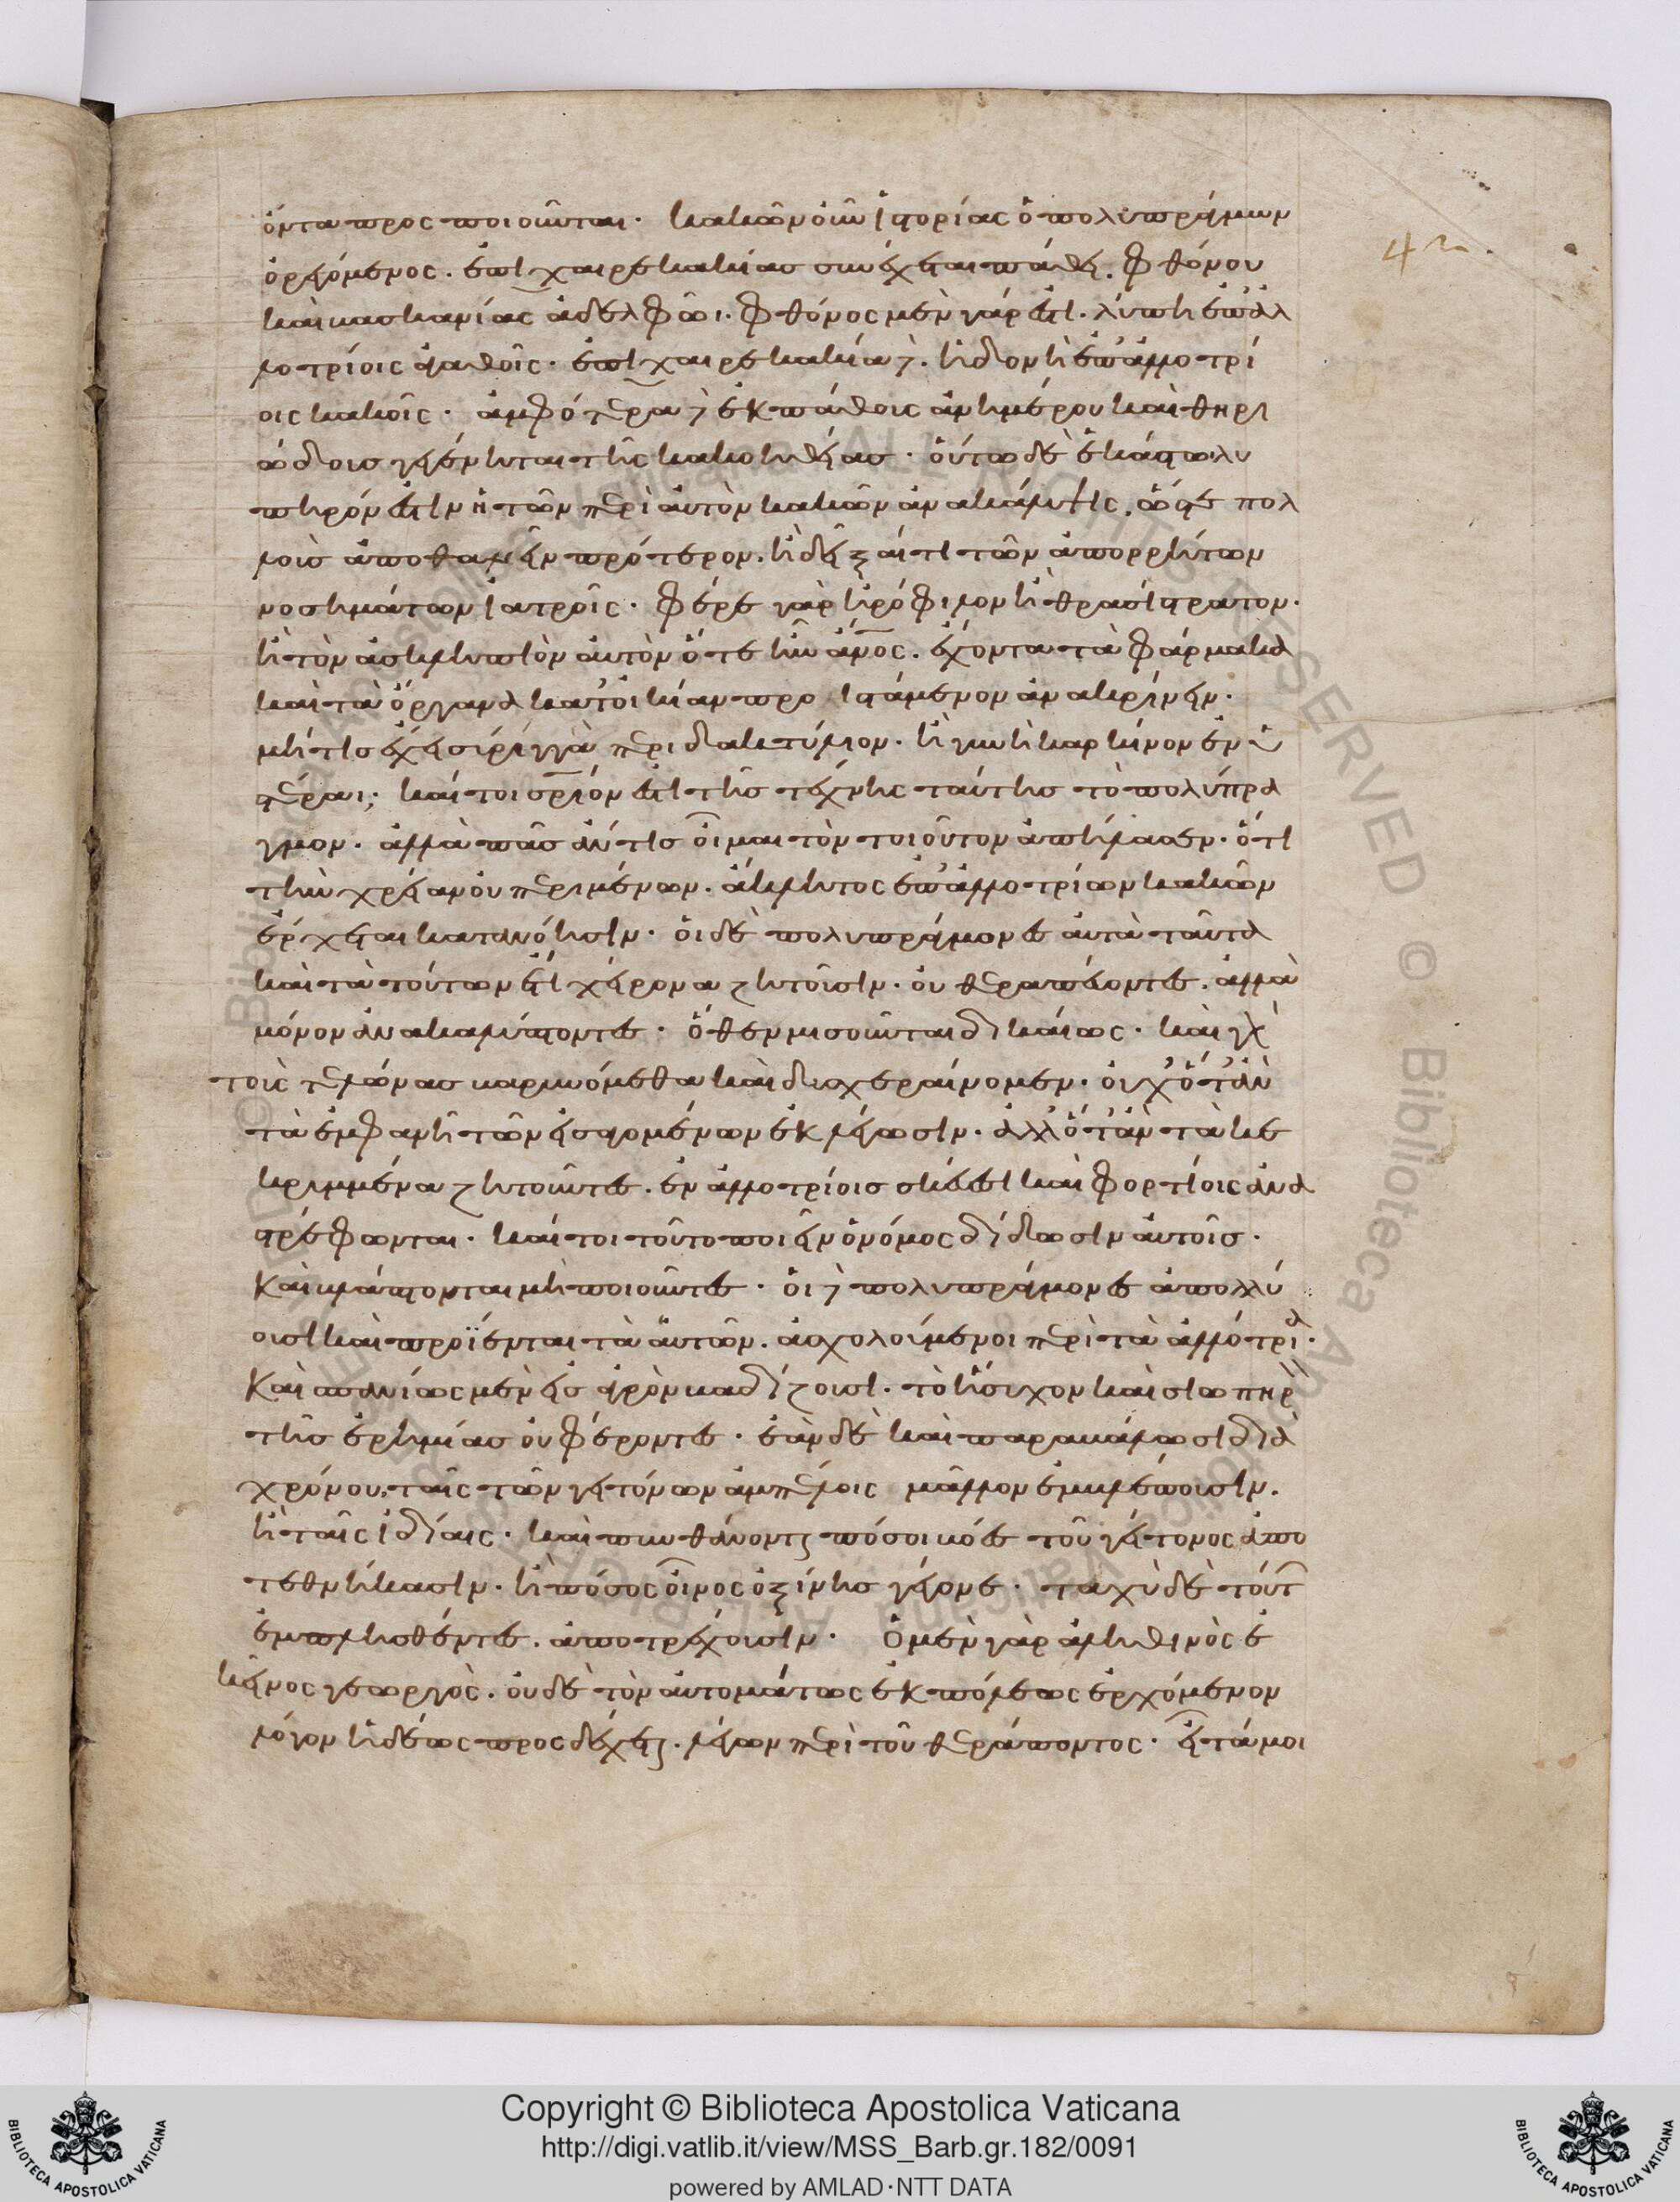 42.
ὄντα προσποιοῦνται. κακῶν οὖν ἱστορίας ὁ πολυπράγμων
ὀρεγόμενος. ἐπιχαιρεκακίας συνέχεται πάθει. φθόνου
καὶ βασκανίας ἀδελφῶι. φθόνος μὲν γάρ ἐστι. λύπη ἐπ' ἀλ
λοτρίοις ἀγαθοῖς. ἐπιχαιρεκακία δὲ. ἡδονὴ ἐπ' ἀλλοτρί
οις κακοῖς. ἀμφότερα δὲ ἐκ πάθους ἀνημέρου καὶ θηρι
ώδους γεγένηται τῆς κακοηθείας. οὕτω δὲ ἑκάστω λυ
πηρόν ἐστιν ἡ τῶν περὶ αὐτὸν κακῶν ἀνακάλυψις. ὥστε πολ
λοὺς ἀποθανεῖν πρότερον. ἢ δεῖξαί τι τῶν ἀπορρήτων
νοσημάτων ἰατροῖς. φέρε γὰρ ἡρόφιλον ἢ θρασίστρατον.
ἢ τὸν ἀσκληπιὸν αὐτὸν ὅτε ἦν ἄνος. ἔχοντα τὰ φάρμακα
καὶ τὰ ὄργανα κατ' οἰκίαν προ ιστάμενον ἀνακρίνειν.
μή τις ἔχει σύριγγα περι δακτύλιον. ἢ γυνὴ καρκίνον ἐν ὑ
στέραι· καίτοι σριόν ἐστι τῆς τέχνης ταύτης τὸ πολύπρα
γμον. ἀλλὰ πᾶς ἄν τις οἶμαι τὸν τοιοῦτον ἀπήλασεν. ὅτι
τὴν χρείαν οὐ περιμένων. ἄκλητος ἐπ' ἀλλοτρίων κακῶν
ἔρχεται κατανόησιν. οἱ δὲ πολυπράγμονες αὐτὰ ταῦτα
καὶ τὰ τούτων ἔτι χείρονα ζητοῦσιν. οὐ θεραπεύοντες. ἀλλὰ
μόνον ἀνακαλύπτοντες. ὅθεν μισοῦνται δικαίως. καὶ γὰρ
τοὺς τελώνας βαρυνόμεθα καὶ δυσχεραίνομεν. οὐχ ὅταν
τὰ ἐμφανῆ τῶν εἰσαγομένων ἐκλέγωσιν. ἀλλ' ὅταν τὰ κε
κρυμμένα ζητοῦντες. ἐν ἀλλοτρίοις σκεύεσι καὶ φορτίοις ἀνα
στρέφωνται. καίτοι τοῦτο ποιεῖν ὁ νόμος δίδωσιν αὐτοῖς.
Καὶ βλάπτονται μὴ ποιοῦντες. οἱ δὲ πολυπράγμονες ἀπολλύ
ουσι καὶ προΐενται τὰ αὑτῶν. ἀσχολούμενοι περὶ τὰ ἀλλότρια.
Καὶ σπανίως μὲν εἰς ἀγρὸν βαδίζουσι. τὸ ἥσυχον καὶ σιωπηρὸν
τῆς ἐρημίας οὐ φέροντες. ἐὰν δὲ καὶ παραβάλωσι διὰ
χρόνου, ταῖς τῶν γειτόνων ἀμπέλοις μᾶλλον ἐμβλέπουσιν.
ἢ ταῖς ἰδίαις. καὶ πυνθάνονται πόσοι βόες τοῦ γείτονος ἀπο
τεθνήκασιν. ἢ πόσος οἶνος ὀξίνης γέγονε. ταχὺ δὲ τούτων
ἐμπλησθέντες. ἀποτρέχουσιν. Ὁ μὲν γὰρ ἀληθινὸς ἐ
κεῖνος γεωργὸς. οὐδὲ τὸν αὐτομάτως ἐκ πόλεως ἐρχόμενον
λόγον ἡδέως προσδέχεται. λέγων περὶ τοῦ θεράποντος. εἶτά μοι